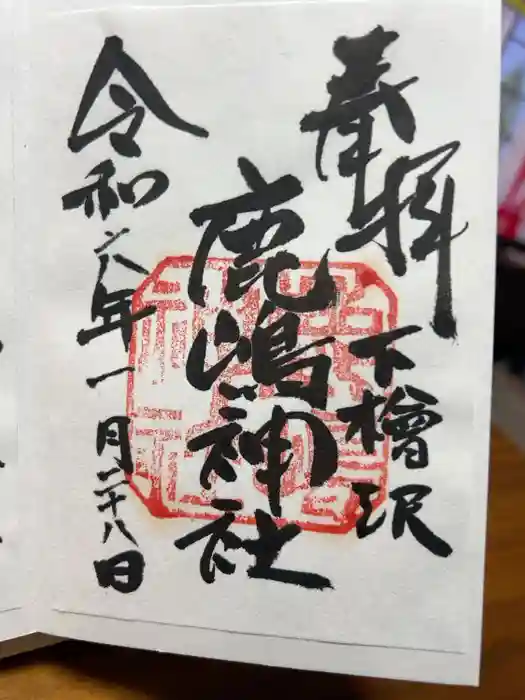 奉拝
下檜沢
鹿嶋神社
令和六年一月二十八日